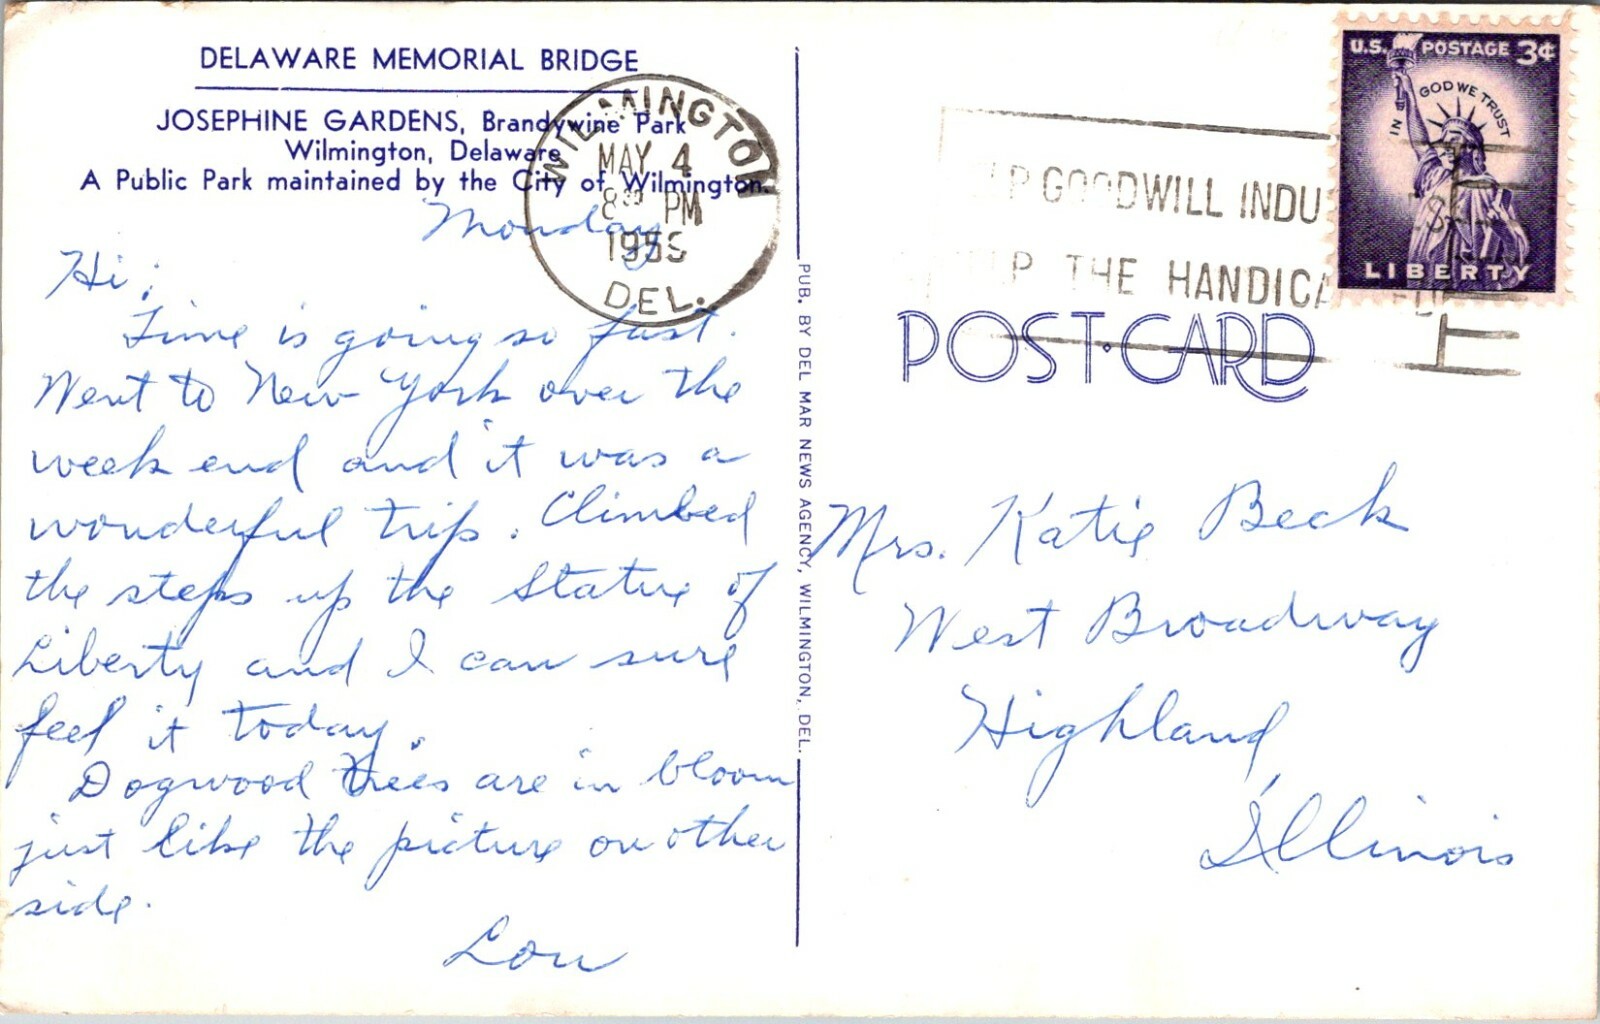 DELAWARE MEMORIAL BRIDGE
JOSEPHINE GARDENS, Brandywine Park
Wilmington, Delaware
A Public Park maintained by the City of Wilmington.
WILMINGTON
MAY 4
8 30 PM
DEL.
Monday
Hi;
Time is going so fast.
Went to New York over the
week end and it was a
wonderful trip. Climbed
the steps up the Statue of
Liberty and I can sure
feel it today.
Dogwood trees are in bloom
just like the picture on other
side.
Lou
PUB. BY DEL MAR NEWS AGENCY, WILMINGTON, DEL.
U.S. POSTAGE 3¢
IN GOD WE TRUST
LIBERTY
GOODWILL INDU
THE HANDICA
POST·CARD
Mrs. Katie Beck
West Broadway
Highland,
Illinois